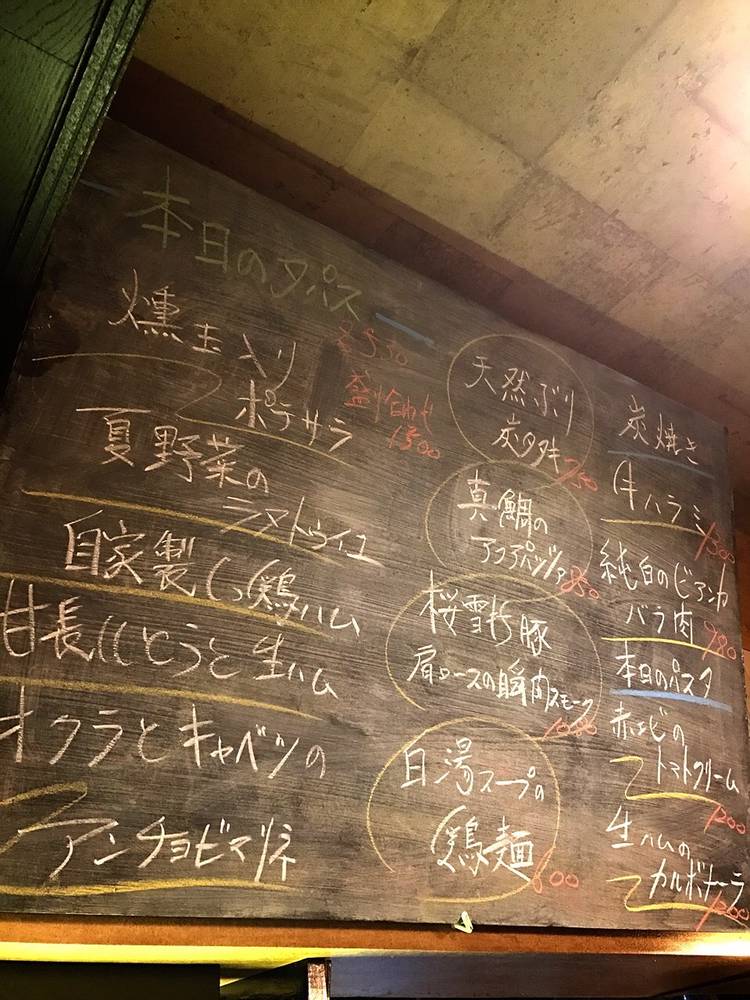 本日のタパス
燻玉入り
ポテサラ
各530
盛り合わせ
1300
夏野菜の
ラタトゥイユ
自家製しっとり鶏ハム
甘長ししとうと生ハム
オクラとキャベツの
アンチョビマリネ
天然ぶり
炭タタキ 750
真鯛の
アクアパッツァ 850
桜雪折豚
肩ロースの瞬肉スモーク
1080
白湯スープの
鶏麺 600
炭焼き
牛ハラミ
1300
純白のビアンカ
バラ肉 980
本日のパスタ
赤エビの
トマトクリーム
1200
生ハムの
カルボナーラ
1200